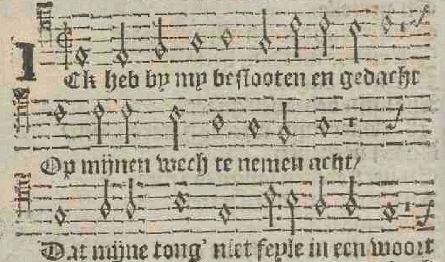 ICk heb by my beslooten en gedacht
Op mijnen wech te nemen acht/
Dat mijne tong' niet feyle in een woort